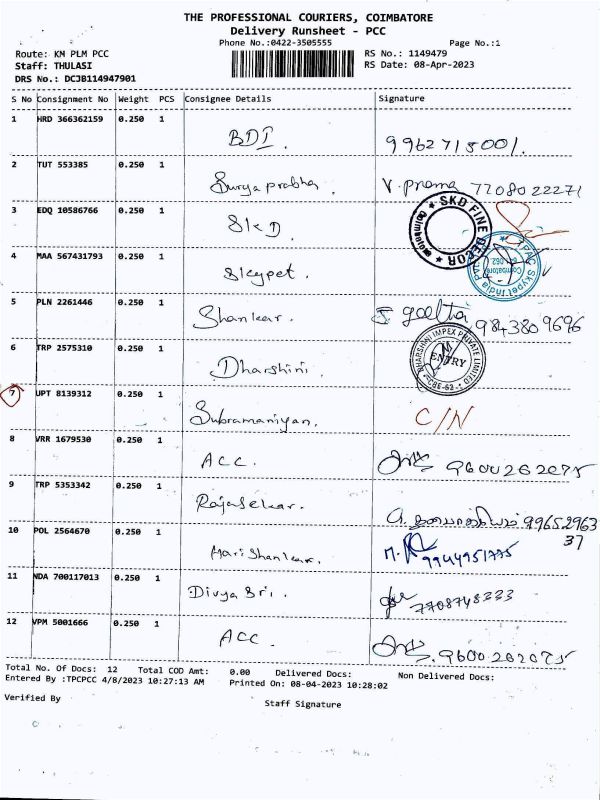 THE PROFESSIONAL COURIERS, COIMBATORE
Delivery Runsheet - PCC
Phone No.:0422-3505555 Page No.:1
Route: KM PLM PCC RS No.: 1149479
Staff: THULASI RS Date: 08-Apr-2023
DRS No.: DCJB114947901
S No Consignment No Weight PCS Consignee Details Signature
1 HRD 366362159 0.250 1 BDI. 9962715001.
2 TUT 553385 0.250 1 Surya prabha V. prema 7708022271
3 EDQ 10586766 0.250 1 SKD. SKD FINE DECOR Coimbatore
4 MAA 567431793 0.250 1 Skypet. Coimbatore
5 PLN 2261446 0.250 1 Shankar. geetha 984380 9696
6 TRP 2575310 0.250 1 Dharshini. DHARSHINI IMPEX PRIVATE LIMITED ENTRY CBE-62
7 UPT 8139312 0.250 1 Subramaniyan. C/N
8 VRR 1679530 0.250 1 ACC. 9600262075
9 TRP 5353342 0.250 1 Rajasekar. 99652963
37
10 POL 2564670 0.250 1 Hari Shankar. 9944951775
11 NDA 700117013 0.250 1 Divya Sri. 7708748333
12 VPM 5001666 0.250 1 ACC. 9600262075
Total No. Of Docs: 12 Total COD Amt: 0.00 Delivered Docs: Non Delivered Docs:
Entered By :TPCPCC 4/8/2023 10:27:13 AM Printed On: 08-04-2023 10:28:02
Verified By Staff Signature